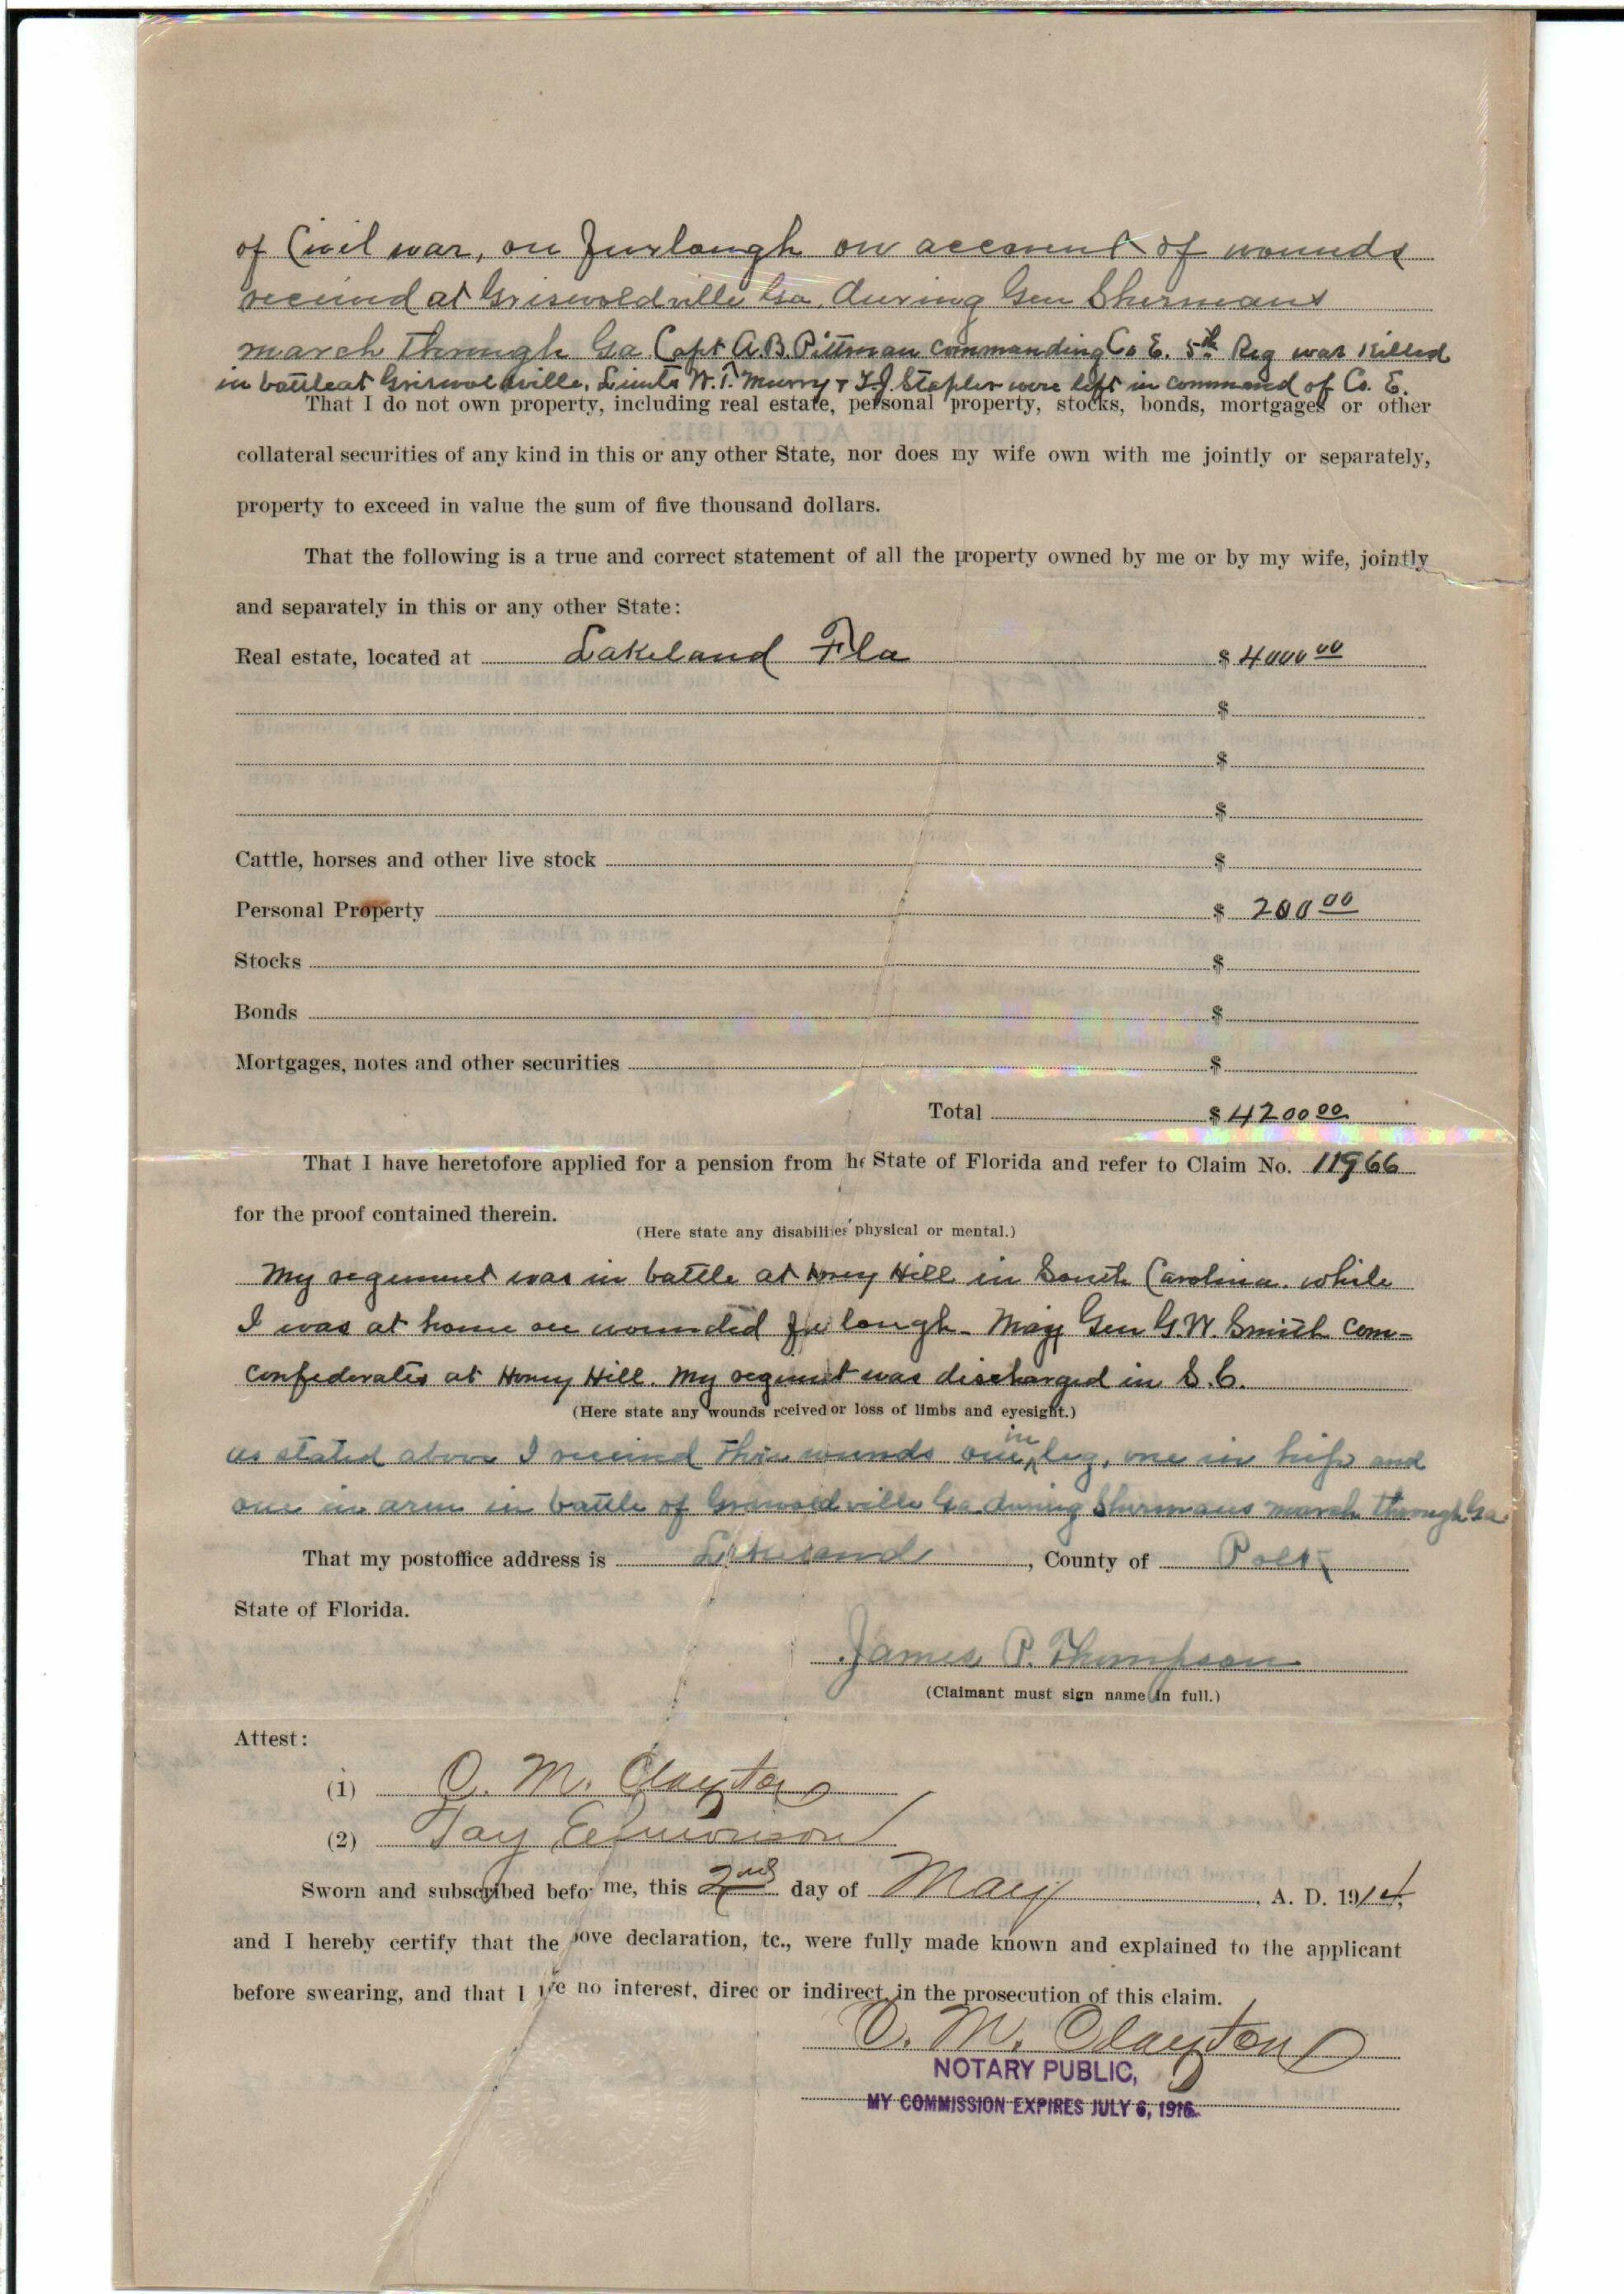 of Civil war, on Furlough on account of wounds
received at Griswoldville Ga. during Gen Shermans
march through Ga Capt A.B. Pittman commanding Co E. 5th Reg was killed
in battle at Griswoldville, Lieuts W.T. Murry & T.J. Stapler were left in command of Co. E.
That I do not own property, including real estate, personal property, stocks, bonds, mortgages or other
collateral securities of any kind in this or any other State, nor does my wife own with me jointly or separately,
property to exceed in value the sum of five thousand dollars.
That the following is a true and correct statement of all the property owned by me or by my wife, jointly
and separately in this or any other State:
Real estate, located at Lakeland Fla $ 4000 00
$
$
$
Cattle, horses and other live stock $
Personal Property $ 200 00
Stocks $
Bonds $
Mortgages, notes and other securities $
Total $ 4200 00
That I have heretofore applied for a pension from he State of Florida and refer to Claim No. 11966
for the proof contained therein.
(Here state any disabilities physical or mental.)
My regiment was in battle at Honey Hill in South Carolina. while
I was at home on wounded furlough. Maj Gen G.W. Smith com-
confederates at Honey Hill. My regiment was discharged in S.C.
(Here state any wounds rceived or loss of limbs and eyesight.)
as stated above I received three wounds one in leg, one in hip and
one in arm in battle of Griswoldville Ga during Shermans march through Ga
That my postoffice address is Lakeland, County of Polk
State of Florida.
James P. Thompson
(Claimant must sign name in full.)
Attest:
(1) O. M. Clayton
(2) Fay Edmonson
Sworn and subscribed befo me, this 2nd day of May, A. D. 1914,
and I hereby certify that the ove declaration, tc., were fully made known and explained to the applicant
before swearing, and that I ve no interest, direc or indirect, in the prosecution of this claim.
O. M. Clayton
NOTARY PUBLIC,
MY COMMISSION EXPIRES JULY 6, 1916.